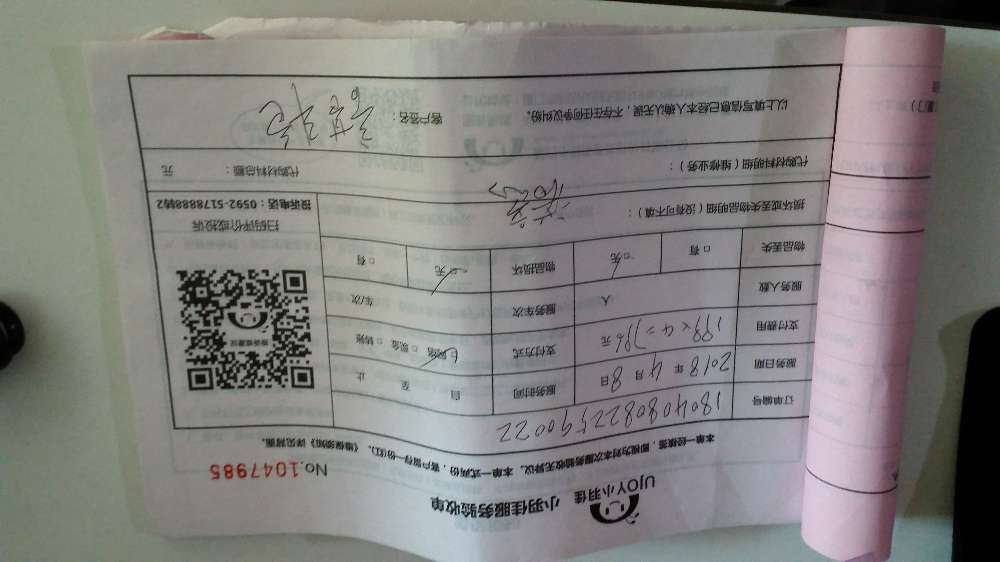 UJOY小羽佳
小羽佳服务验收单
No.1047985
本单一经核签，即视为对本次服务验收无异议。本单一式两份，客户留存一份(红)。《维保须知》详见背面。
订单编号 1804080822590022
服务日期 2018年4月8日 服务时间 自 至 止
支付费用 199×4=796元 支付方式 □网络 □现金 □转账
服务人数 人 服务车次 车/次
物品丢失 □有 □无 物品损坏 □无 □有
损坏或丢失物品明细（没有可不填）：
扫码评价或投诉
投诉电话：0592-5178888转2
代购材料明细（维修业务）： 代购材料总额： 元
以上填写信息已经本人确认无误，不存在任何争议纠纷。 客户签名：